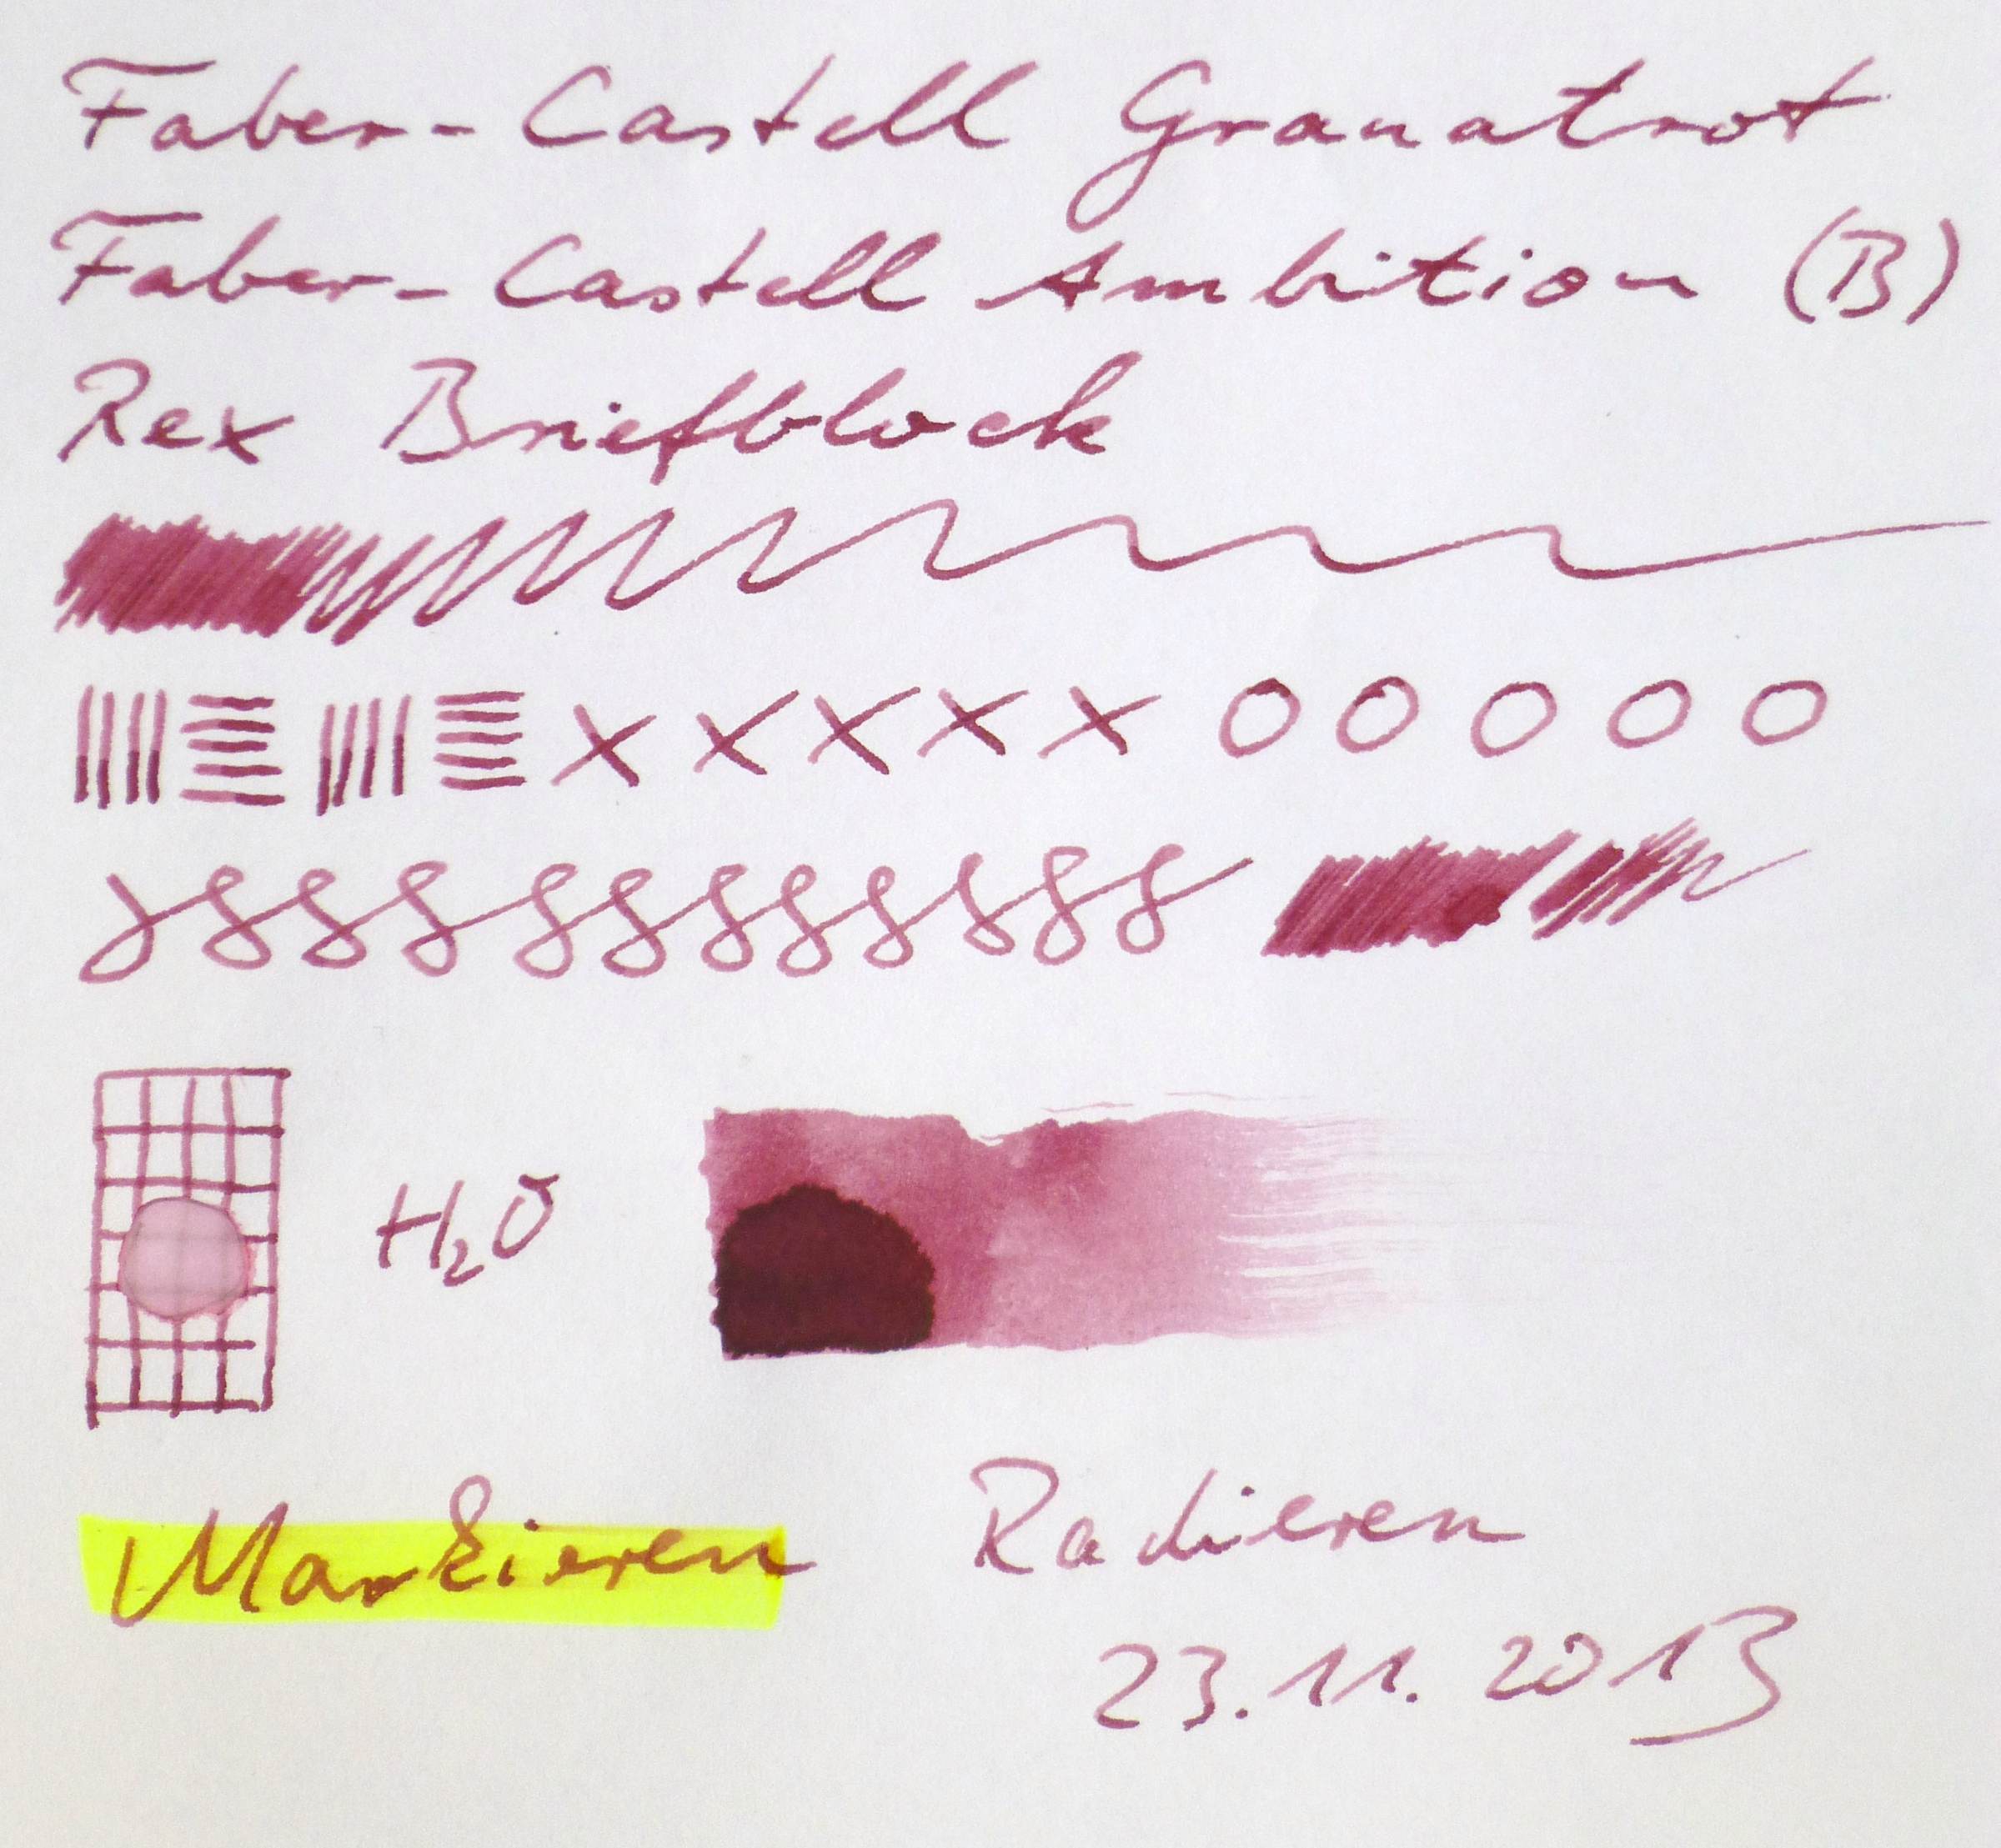 Faber-Castell Granatrot
Faber-Castell Ambition (B)
Rex Briefblock
|||| |||| x x x x x O O O O O
H₂O
Markieren Radieren
23.11.2013